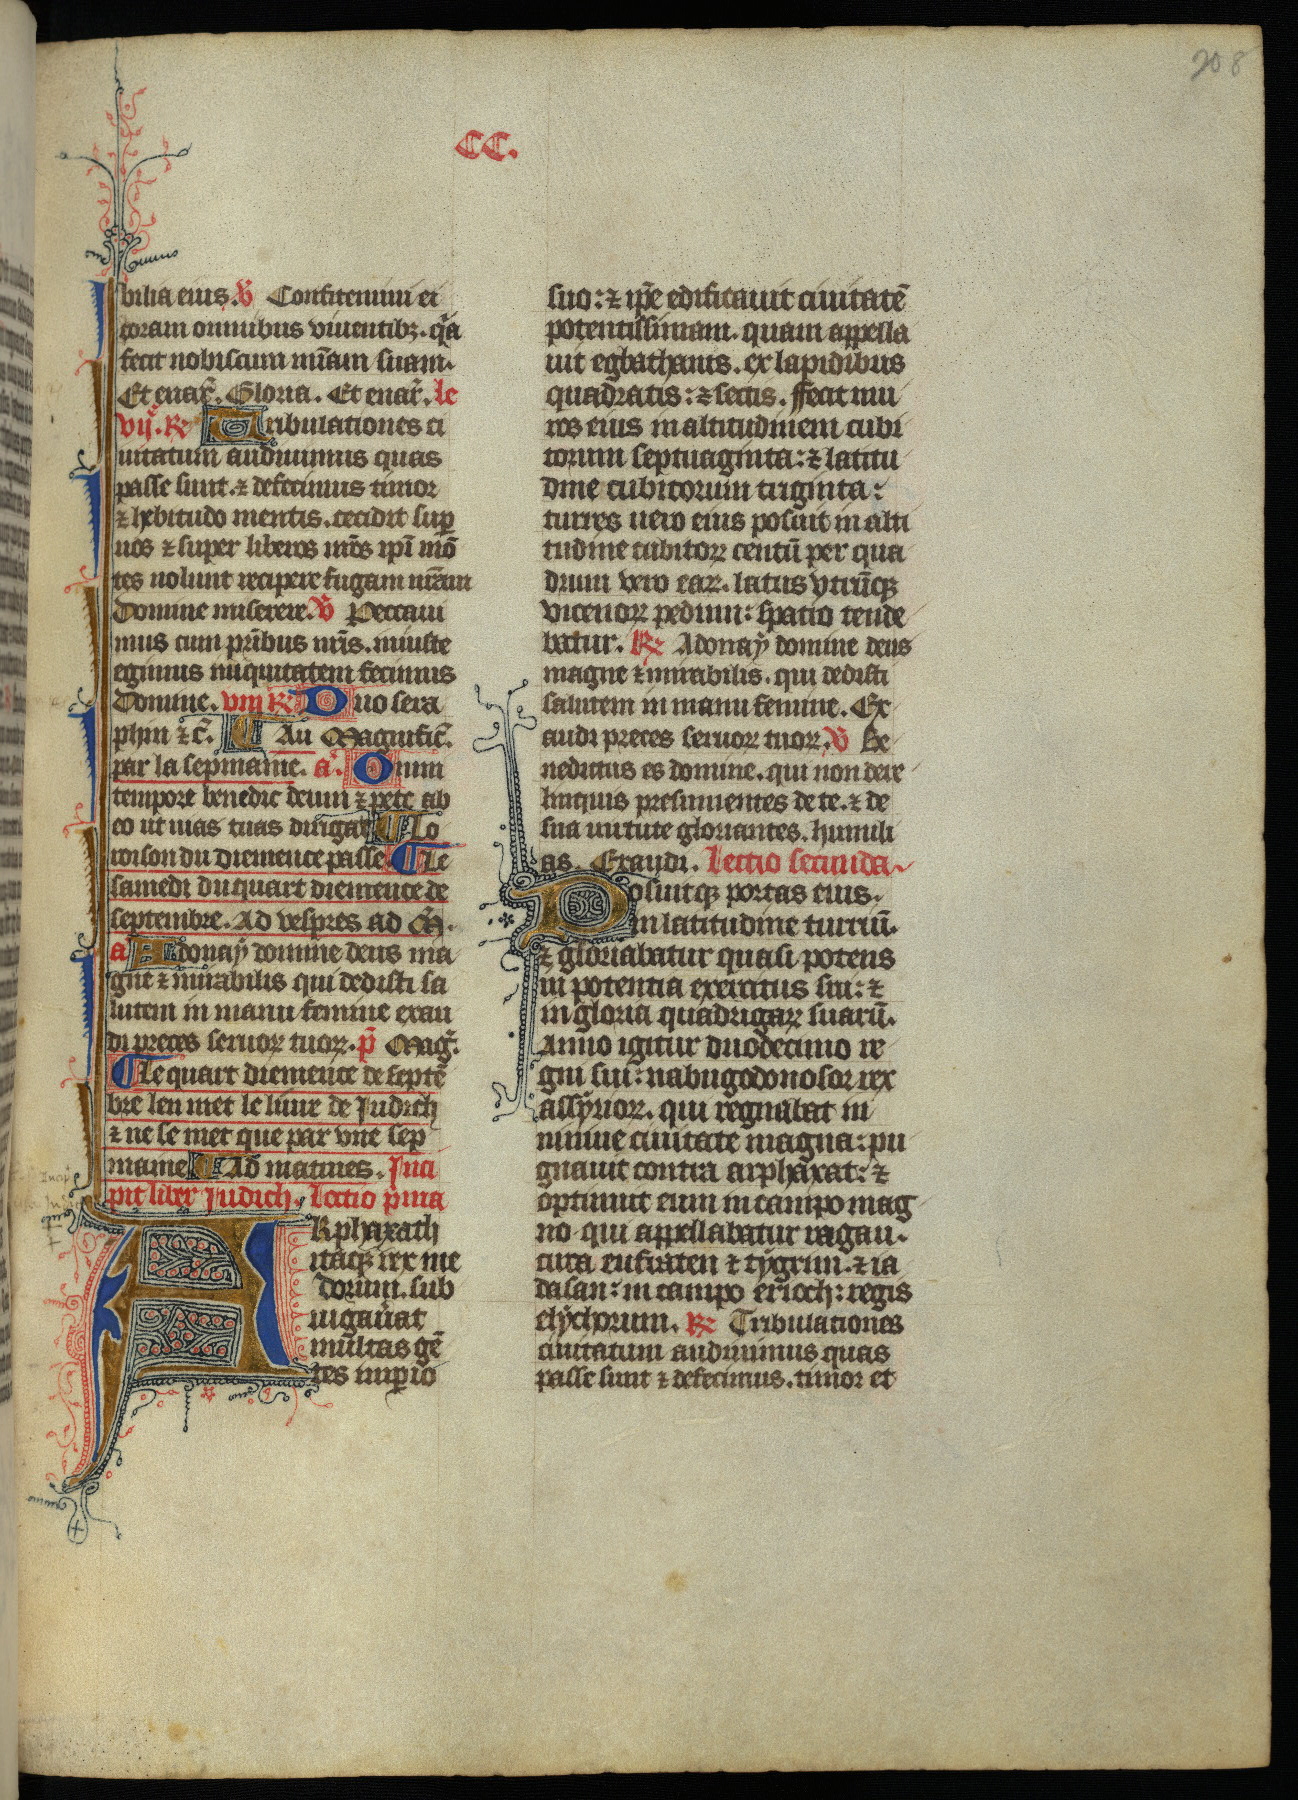 208
CC.
bilia eius. V Confitemini ei
coram omnibus viuentibꝫ. qͥa
fecit nobiscum mīam suam.
Et enar̄. Gloria. Et enar̄. le
vij. R Tribulationes ci
uitatum audiuimus quas
passe sunt. ⁊ defecimus timor
⁊ hebitudo mentis. cecidit sup̱
nos ⁊ super liberos nr̄os ipī mō
tes nolunt recipere fugam nr̄am
Domine miserere. V Peccaui
mus cum pr̄ibus nr̄is. iniuste
egimus iniquitatem fecimus
Domine. viij R Duo sera
phin ⁊ c̄. Au Magnific̄.
par la sepmaine. a. Omni
tempore benedic deum ⁊ pete ab
eo ut uias tuas dirigat Lo
roison du diemence passe. Le
samedi du quart diemence de
septembre. Ad vespres ad M̄.
a Adonaÿ domine deus ma
gne ⁊ mirabilis qui dedisti sa
lutem in manu femine exau
di preces seruoꝝ tuoꝝ. p̄ Maḡ.
Le quart diemence de septē
bre len met le liure de Judich
⁊ ne se met que par vne sep
maine Ad matines. Inci
pit liber Judich. Lectio p̄ma
ARphaxath
itaqꝫ rex me
dorum. sub
iugauerat
multas gē
tes imꝑio
suo: ⁊ ip̄e edificauit ciuitatē
potentissimam. quam appella
uit egbathanis. ex lapidibus
quadratis: ⁊ sectis. ffecit mu
ros eius in altitudinem cubi
torum septuaginta: ⁊ latitu
dine cubitorum triginta:
turres uero eius posuit in alti
tudine cubitoꝝ centū per qua
drum vero eaꝝ. latus vtrūqꝫ
vicenoꝝ pedum: spatio tende
batur. R Adonaÿ domine deus
magne ⁊ mirabilis. qui dedisti
salutem in manu femine. Ex
audi preces seruoꝝ tuoꝝ. V Be
nedictus es domine. qui non dere
linquis presumentes de te. ⁊ de
sua uirtute gloriantes. humili
as. Exaudi. Lectio secunda
Posuitqꝫ portas eius.
in latitudine turriū.
⁊ gloriabatur quasi potens
in potentia exercitus sui: ⁊
in gloria quadrigaꝝ suarū.
Anno igitur duodecimo re
gni sui: nabugodonosor rex
assÿrioꝝ. qui regnabat in
niniue ciuitate magna: pu
gnauit contra arphaxat: ⁊
optinuit eum in campo mag
no qui appellabatur ragau.
circa eufraten ⁊ tÿgrim. ⁊ ia
dasan: in campo erioch: regis
elÿchorum. R Tribulationes
ciuitatum audiuimus quas
passe sunt ⁊ defecimus. timor et